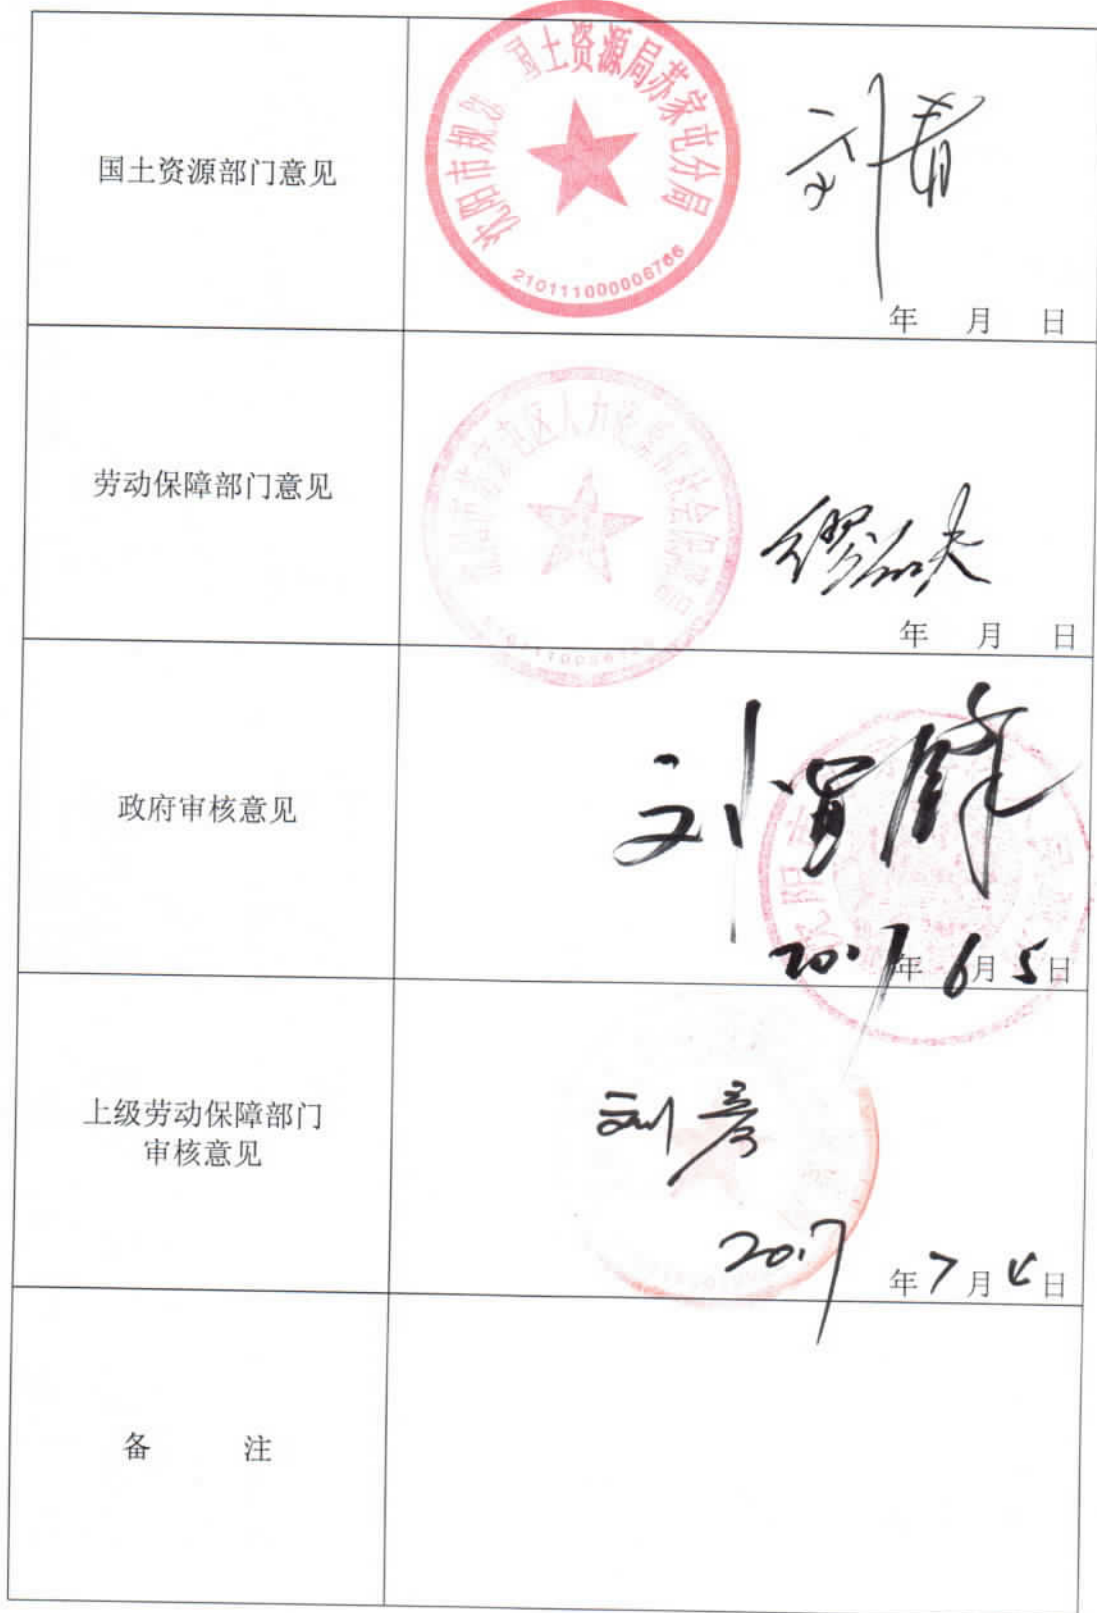 国土资源部门意见
沈阳市规划国土资源局苏家屯分局
2101110000006766
年 月 日
劳动保障部门意见
人力资源和社会保障
年 月 日
政府审核意见
沈阳
2017年6月5日
上级劳动保障部门
审核意见
刘彦
2017年7月4日
备 注